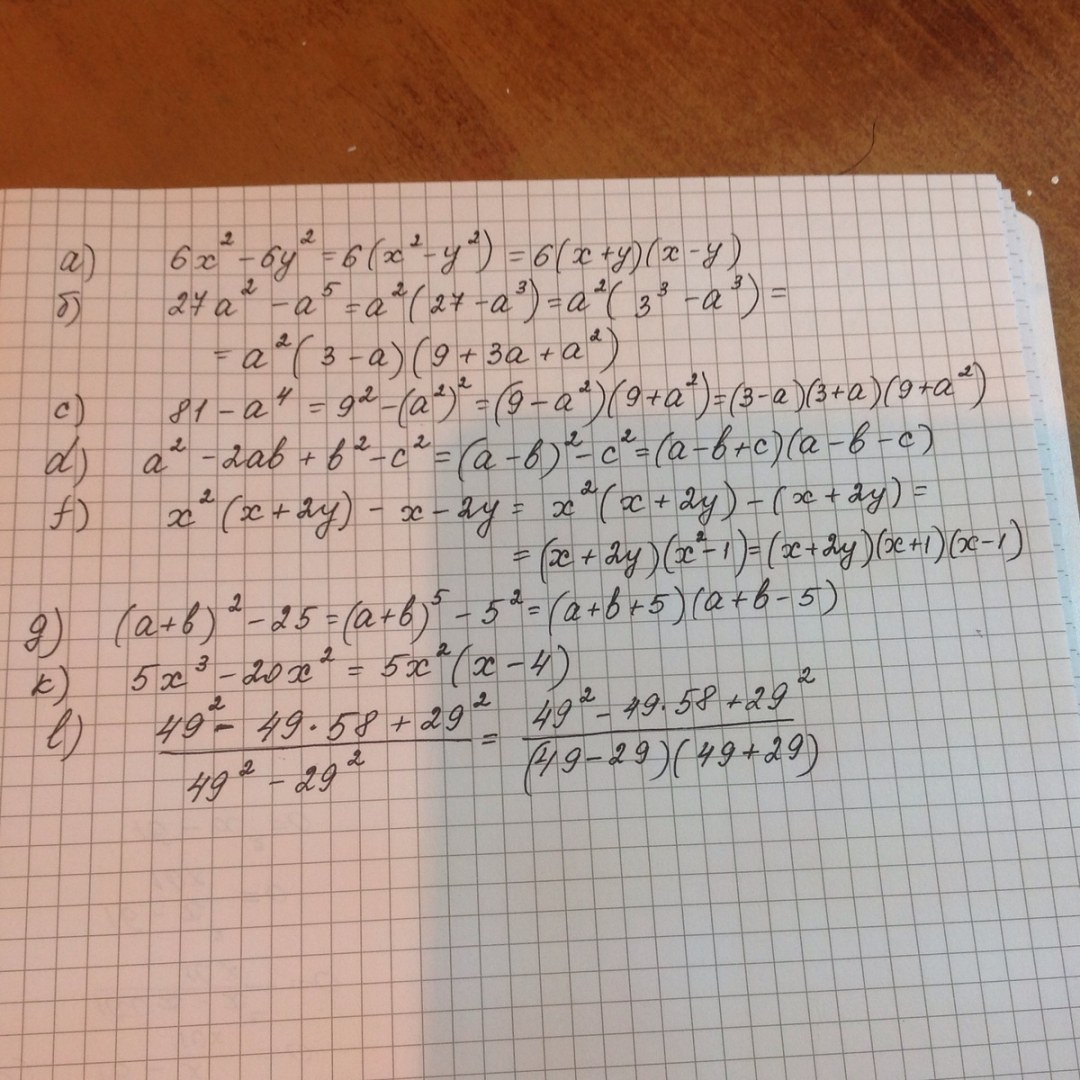 а) 6x² - 6y² = 6(x² - y²) = 6(x+y)(x-y)
б) 27a² - a⁵ = a²(27 - a³) = a²(3³ - a³) =
= a²(3 - a)(9 + 3a + a²)
c) 81 - a⁴ = 9² - (a²)² = (9 - a²)(9 + a²) = (3-a)(3+a)(9+a²)
d) a² - 2ab + b² - c² = (a - b)² - c² = (a-b+c)(a-b-c)
f) x²(x + 2y) - x - 2y = x²(x + 2y) - (x + 2y) =
= (x + 2y)(x² - 1) = (x+2y)(x+1)(x-1)
g) (a+b)² - 25 = (a+b)⁵ - 5² = (a+b+5)(a+b-5)
к) 5x³ - 20x² = 5x²(x - 4)
l) (49² - 49·58 + 29²)/(49² - 29²) = (49² - 49·58 + 29²)/((49-29)(49+29))